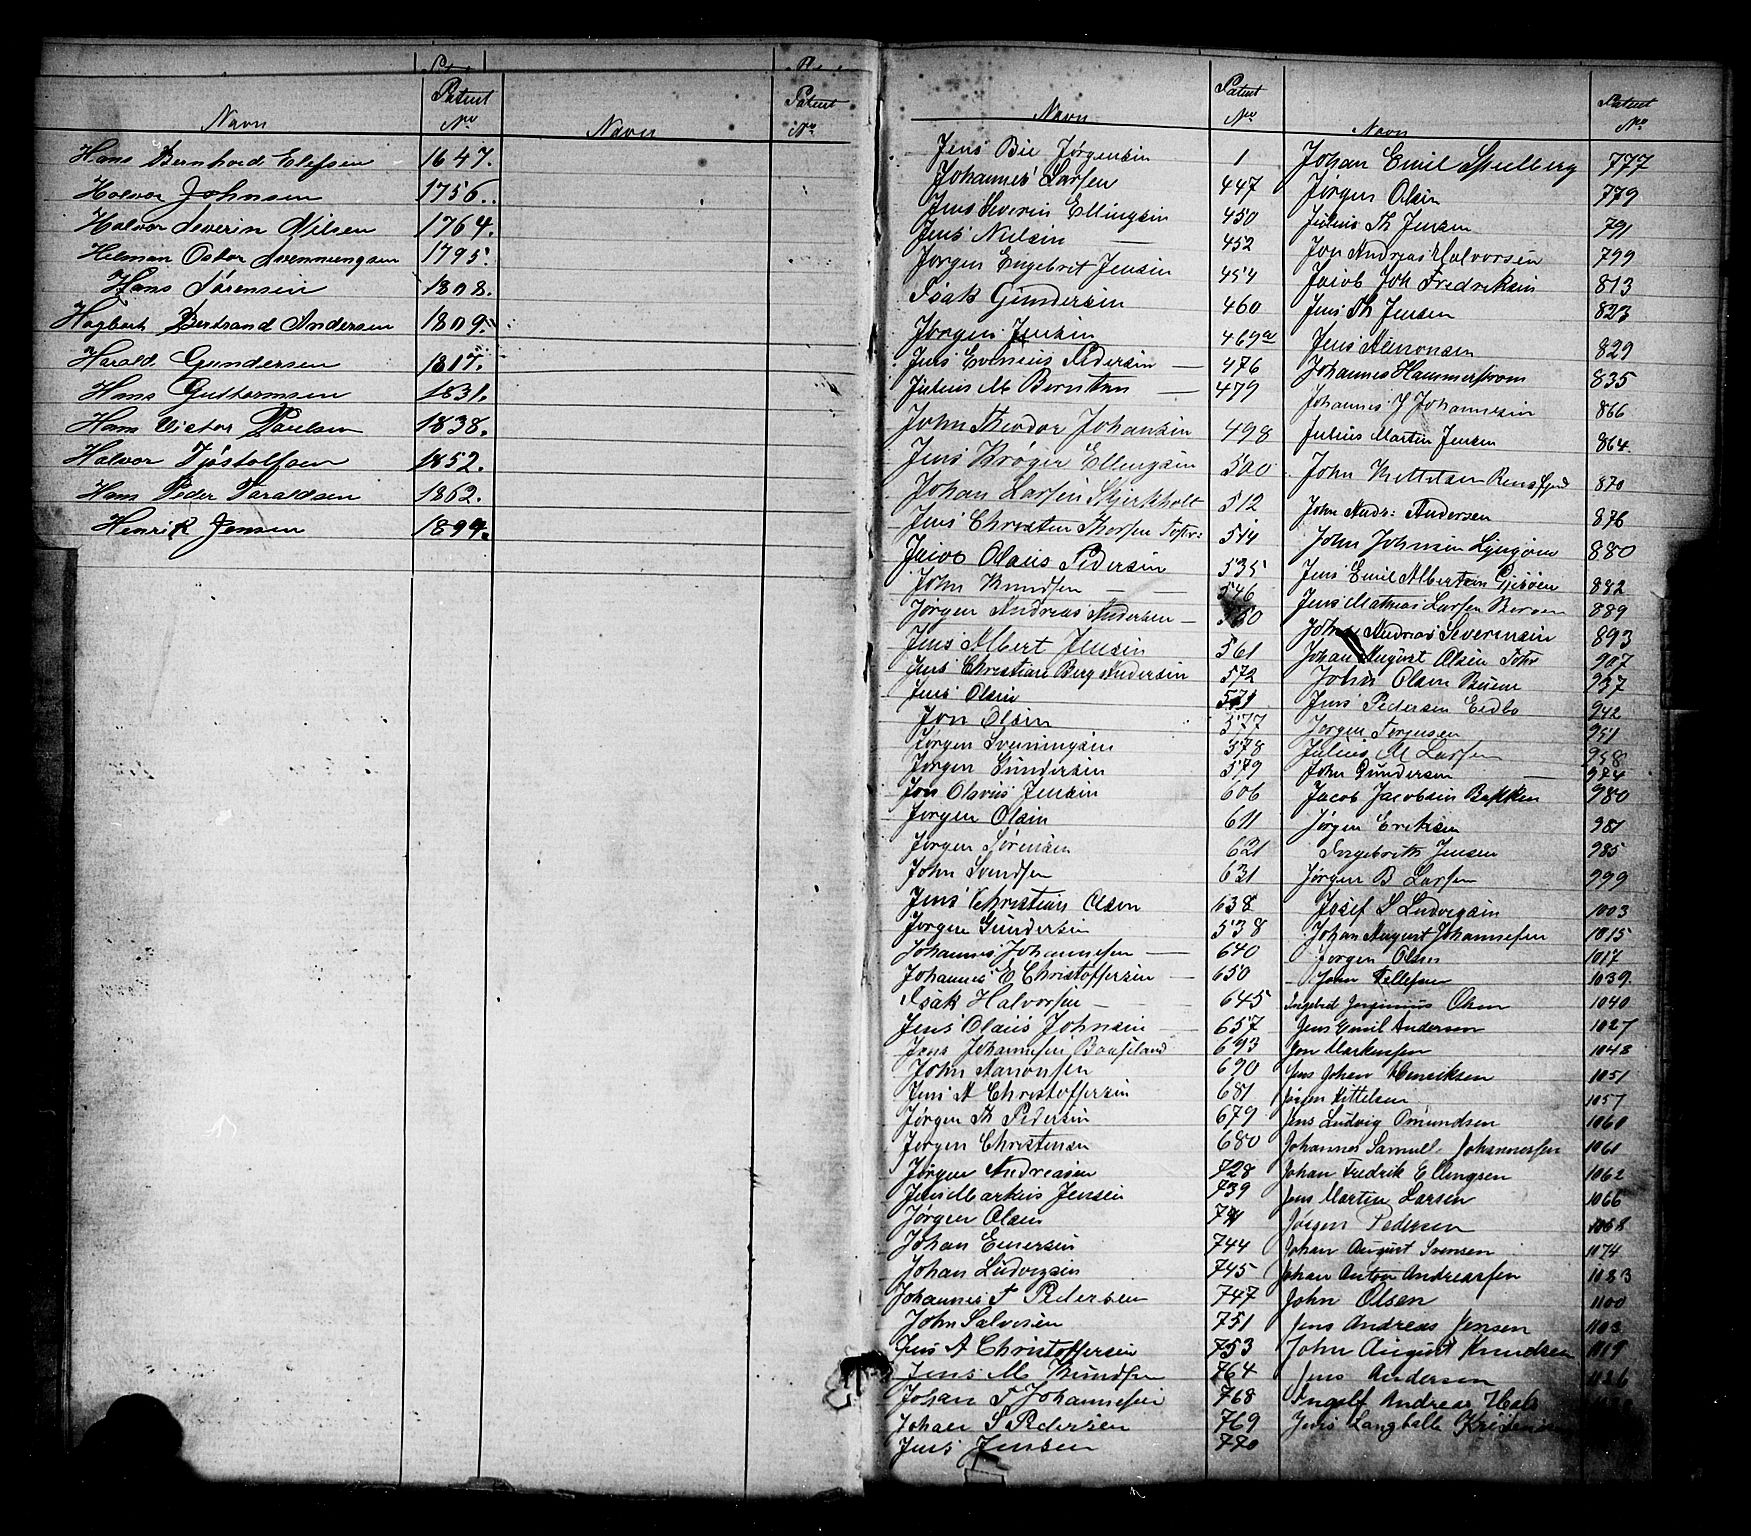 Navn Patent No Navn Patent No
Hans Bernhard Elefsen 1647.
Halvor Johnsen 1756.
Halvor Severin Nilsen 1764.
Helman Oskar Svennungsen 1795.
Hans Sørensen 1808.
Hagbart Bertrand Andersen 1809.
Harald Gundersen 1817.
Hans Guttormsen 1831.
Hans Victor Paulsen 1838.
Halvor Tjøstolfsen 1852.
Hans Peder Taraldsen 1862.
Henrik Jensen 1894.
Navn Patent No
Jens Bie Jørgensen 1
Johannes Larsen 447
Jens Severin Ellingsen 450
Jens Nielsen 452
Jørgen Engebret Jensen 454
Isak Gundersen 460
Jørgen Jensen 469a
Jens Evenius Pedersen 476
Julius M Berntsen 479
John Theodor Johansen 498
Jens Krøger Ellingsen 500
Johan Larsen Skjerkholt 512
Jens Christen Thorsen 514
Jacob Olaus Pedersen 535
John Knudsen 546
Jørgen Andreas Andersen
Jens Albert Jensen 561
Jens Christian Berg Andersen 572
Jens Olsen 571
Jon Olsen 577
Jørgen Svenningsen 578
Jørgen Gundersen 579
Jon Olavus Jensen 606
Jørgen Olsen 611
Jørgen Sørensen 621
John Svendsen 631
Jens Christian Olsen 638
Jørgen Gundersen 538
Johannes Johannesen 640
Johannes E Christoffersen 650
Isak Halvorsen 645
Jens Olaus Johnsen 657
Jens Johannesen Baaseland 693
John Aanonsen 690
Jens A Christoffersen 681
Jørgen Th Pedersen 679
Jørgen Christensen 680
Jørgen Andreasen 728
Jens Markus Jensen 739
Jørgen Olsen
Johan Einersen 744
Johan Ludvigsen 745
Johannes T Pedersen 747
John Salvesen 751
Jens A Christoffersen 753
Jens M Knudsen 764
Johan T Johannesen 768
Johan S Pedersen 769
Jens Jensen 770
Navn Patent No
Johan Emil Spielberg 777
Jørgen Olsen 779
Julius Th Jensen 791
Jon Andreas Halvorsen 799
Jacob Joh Fredriksen 813
Jens Th Jensen 823
Jens Aanonsen 829
Johannes Hammerstrøm 835
Johannes J Johannesen 866
Julius Martin Jensen 864
John Kittelsen 870
John Andr: Andersen 876
John Johnsen Lyngøen 880
Jens Emil Albertsen 882
Jens Mathias Larsen 889
Johan Andreas Severinsen 893
Johan August Olsen 907
John Olsen 937
Jens Pedersen Eidbo 942
Jørgen Torjussen 951
Julius M Larsen 958
John Gundersen 974
Jacob Jacobsen Bakken 980
Jørgen Eriksen 981
Ingebrith Jensen 985
Jørgen B Larsen 999
Josef S Ludvigsen 1003
Johan August Johannesen 1015
Jørgen Olsen 1017
John Tellefsen 1039.
Ingebret Jørginius Olsen 1040
Jens Emil Andersen 1027
Jon Markussen 1048
Jens Johan Henriksen 1051
Jørgen Kittelsen 1057
Jens Ludvig Omundsen 1060
Johannes Samuel Johannessen 1061
Johan Fredrik Ellingsen 1062
Jens Martin Larsen 1066
Jørgen Pedersen 1068
Johan August Svensen 1074
Johan Anton Andreassen 1083
John Olsen 1100
Jens Andreas Jensen 1103
John August Knudsen 1119
Jens Andersen 1126
Ingolf Andreas Hals
Jens Langballe